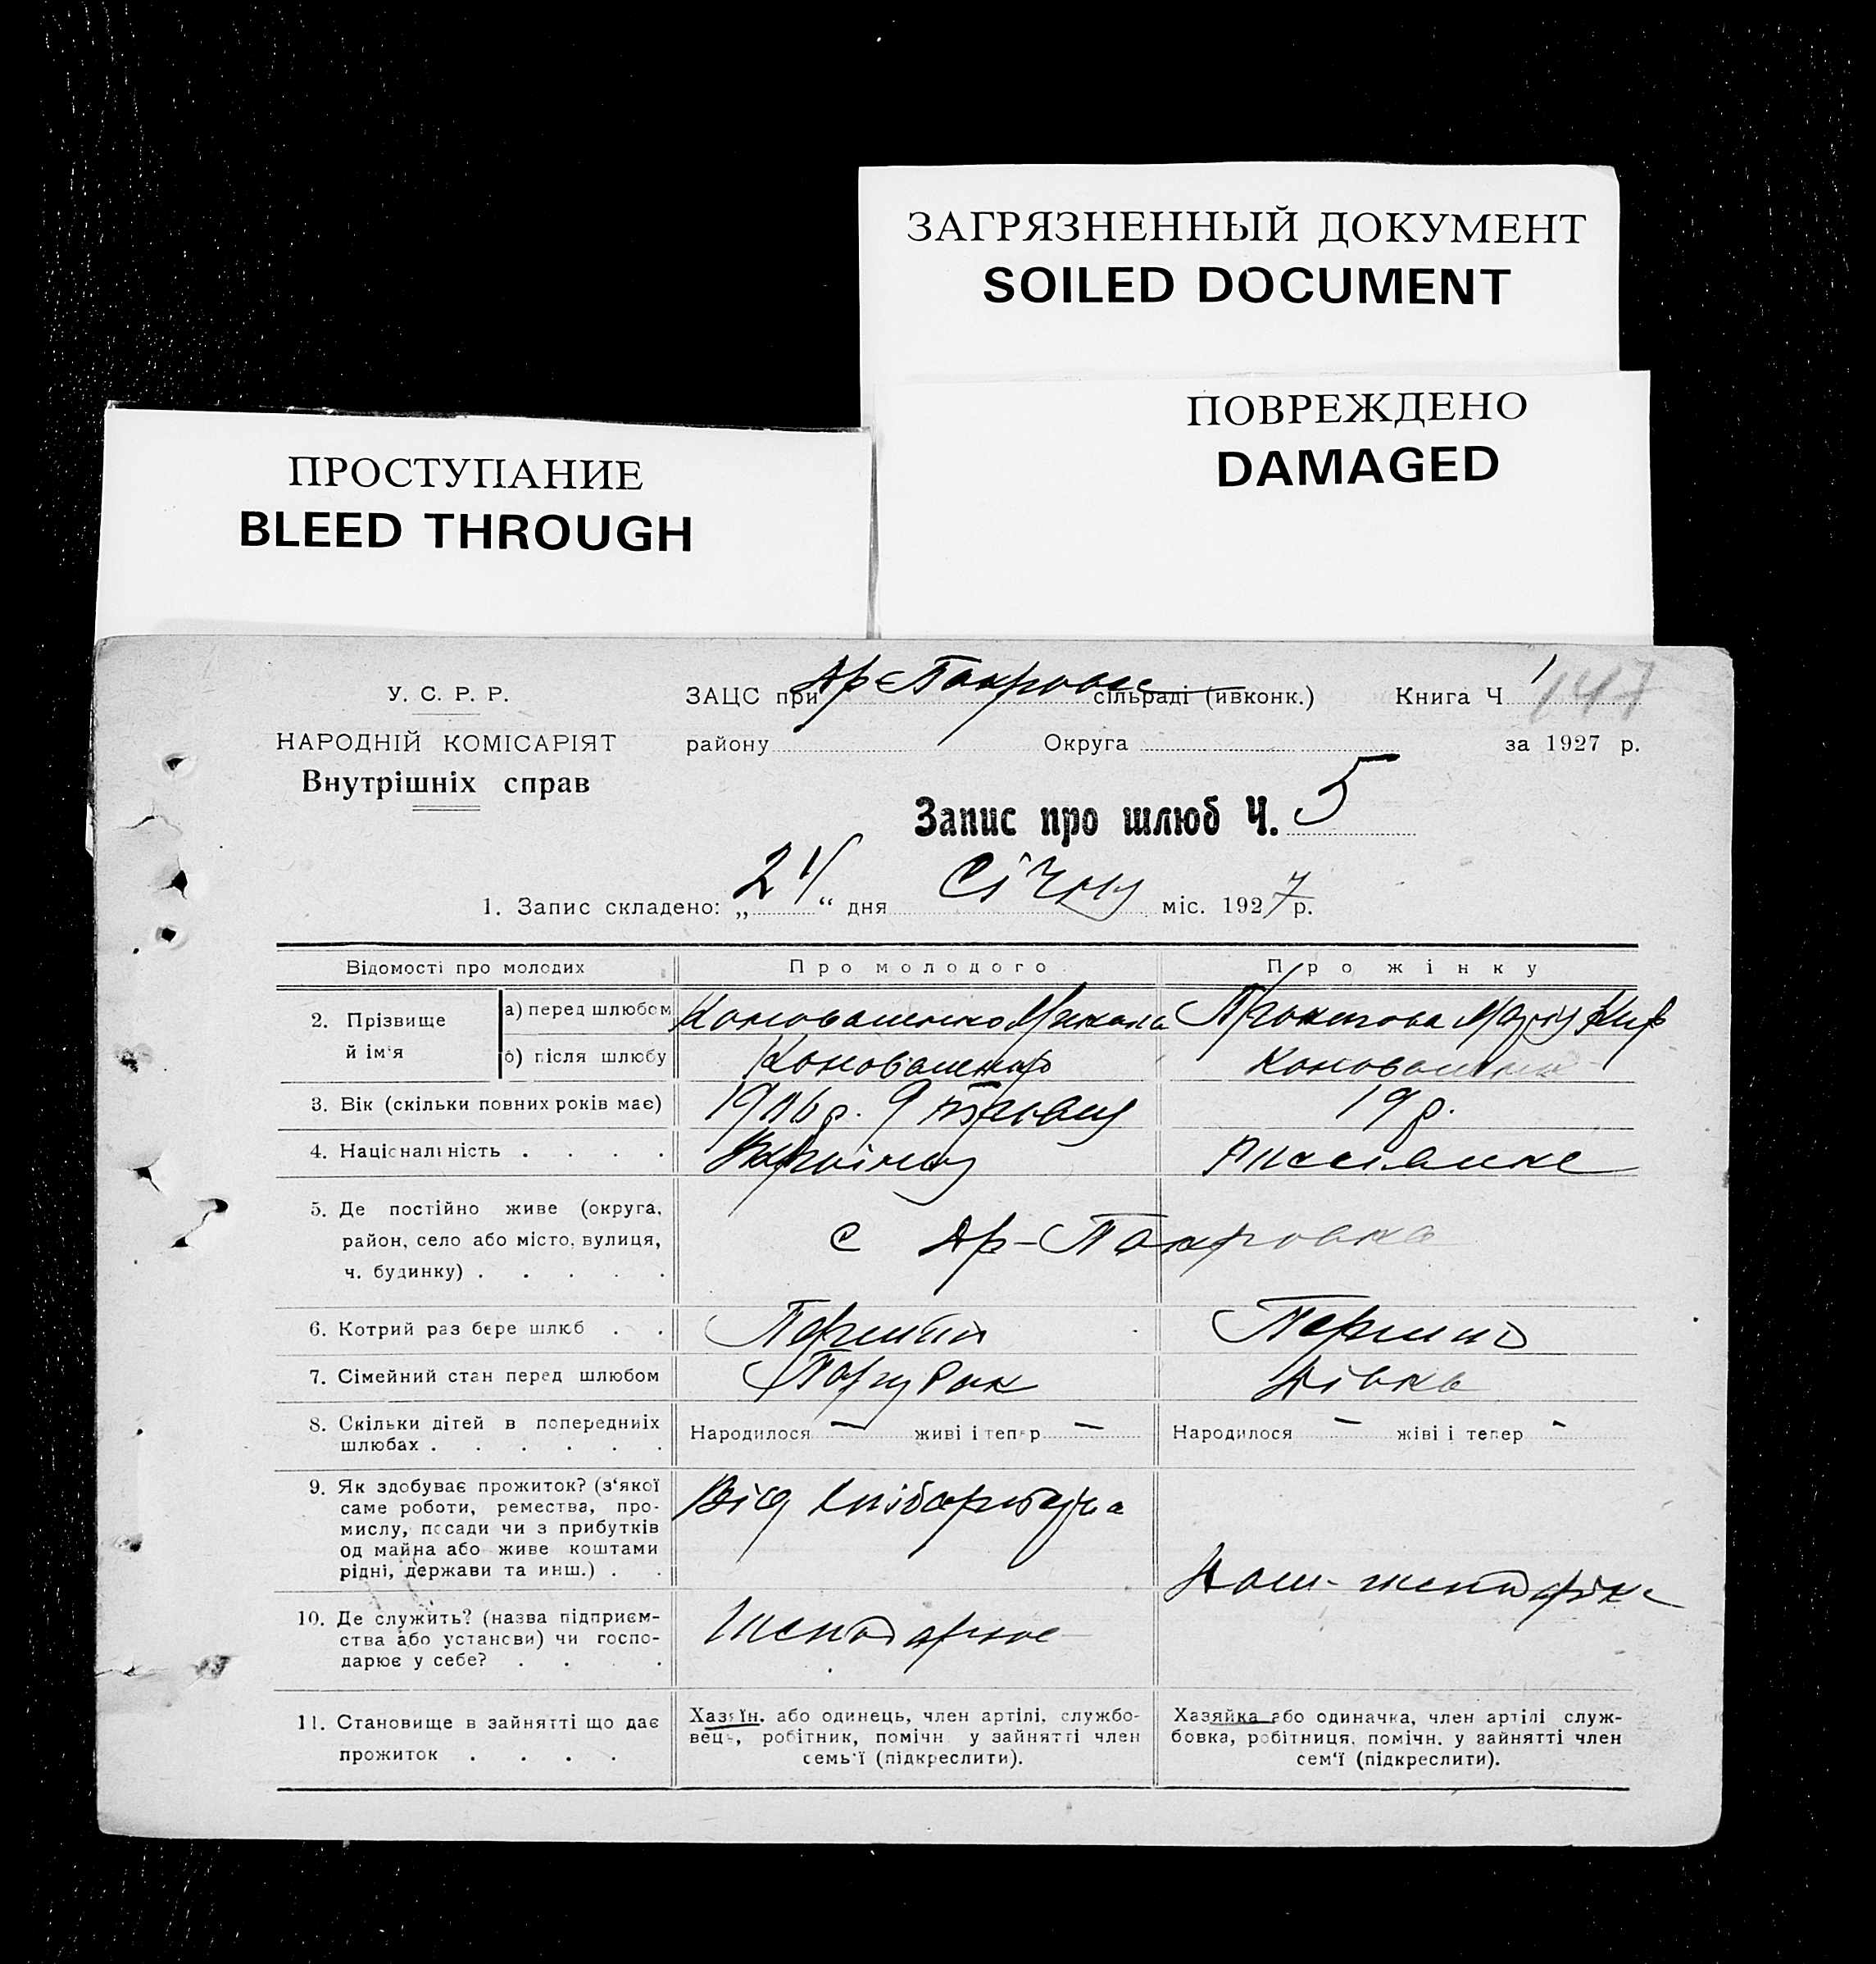 ЗАГРЯЗНЕННЫЙ ДОКУМЕНТ
SOILED DOCUMENT
ПОВРЕЖДЕНО
DAMAGED
ПРОСТУПАНИЕ
BLEED THROUGH
У. С. Р. Р.
НАРОДНІЙ КОМІСАРІЯТ
Внутрішніх справ
ЗАЦС при сільраді (ивконк.) Книга Ч 1 147
району Округа за 1927 р.
Запис про шлюб Ч. 5
1. Запис складено: „ “ дня Січня міс. 1927 р.
Відомості про молодих Про молодого Про жінку
2. Прізвище й ім'я
а) перед шлюбом Коноваленко Микола
б) після шлюбу Коноваленко
3. Вік (скільки повних років має) 1906 р. 9 19 р.
4. Національність . . . .
5. Де постійно живе (округа, район, село або місто, вулиця, ч. будинку) . . . . . с Ар-Покровка
6. Котрий раз бере шлюб . . Перший Перший
7. Сімейний стан перед шлюбом Парубок Дівка
8. Скільки дітей в попередниіх шлюбах . . . . . . Народилося — живі і тепер — Народилося — жіві і тепер -
9. Як здобуває прожиток? (з‘якої саме роботи, ремества, промислу, посади чи з прибутків од майна або живе коштами рідні, держави та инш.) . . Від хліборобства
10. Де служить? (назва підприємства або установи) чи господарює у себе? . . . .
11. Становище в зайнятті що дає прожиток . . . .
Хазяїн, або одинець, член артілі, службовець, робітник, помічн. у зайнятті член семь'ї (підкреслити).
Хазяйка або одиначка, член артілі службовка, робітниця, помічн. у зайнятті член сем‘ї (підкреслити).